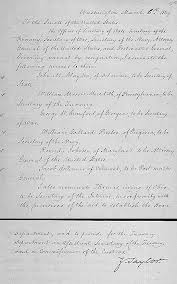 Washington March 6th 1849
To the Senate of the United States.
The Offices of Secretary of State, Secretary of the
Treasury, Secretary of War, Secretary of the Navy, Attorney
General of the United States and Postmaster General
John M. Clayton, of Delaware, to be Secretary of
State.
William Morris Meredith, of Pennsylvania, to be
Secretary of the Treasury.
George W. Crawford, of Georgia, to be Secretary
of War.
William Ballard Preston, of Virginia, to be
Secretary of the Navy.
Reverdy Johnson, of Maryland, to be Attorney
General of the United States.
Jacob Collamer, of Vermont, to be Postmaster
General.
Thomas Ewing, of Ohio,
to be Secretary of the Interior, in conformity
with the provisions of the act to establish the Home
Department, and to provide for the Treasury
Department an Assistant Secretary of the Treasury
and a Commissioner of the Customs.
Z. Taylor